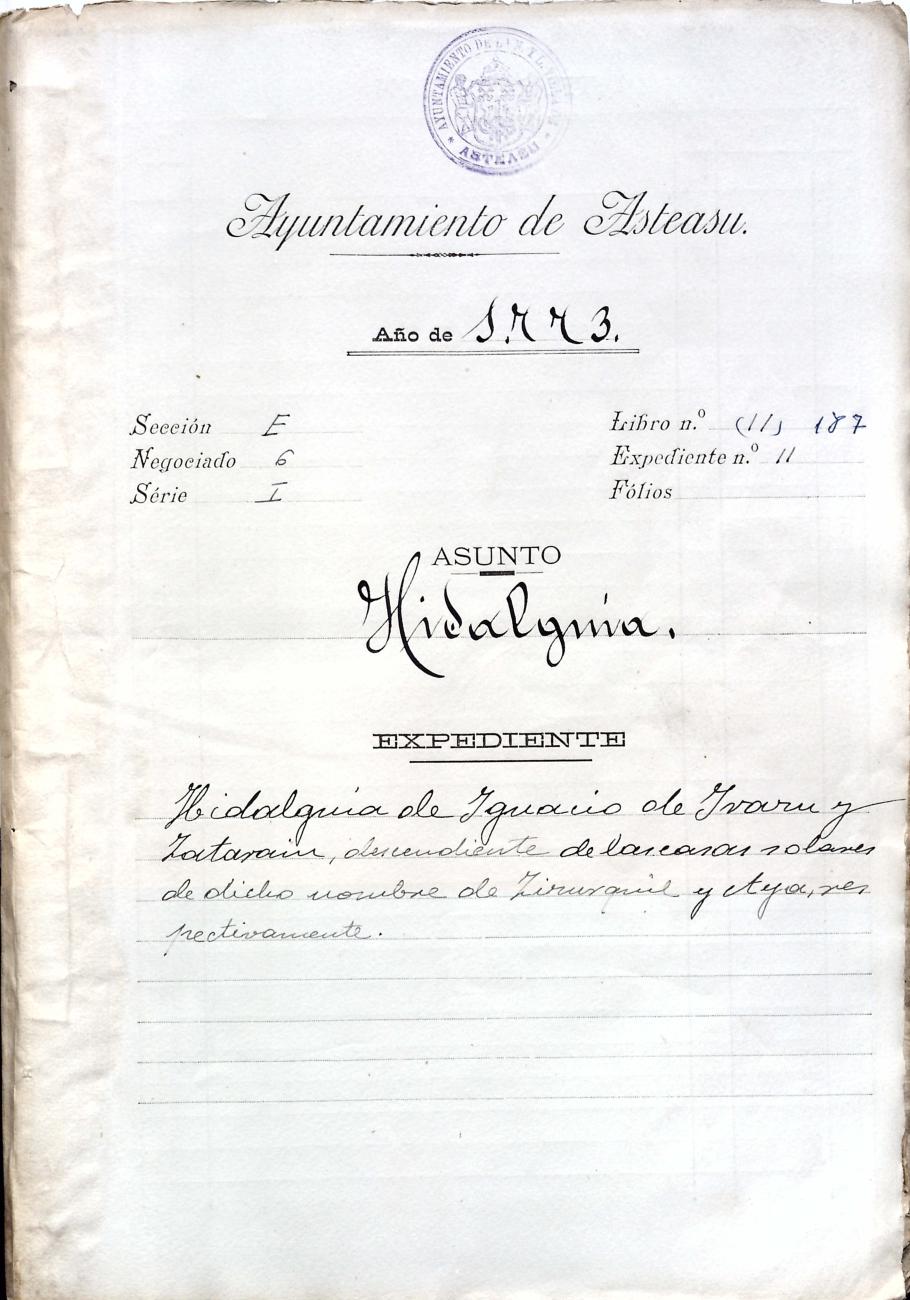 AYUNTAMIENTO DE
ASTEASU
Ayuntamiento de Asteasu.
Año de 1.773.
Sección E
Negociado 6
Série I
Libro n.º (11) 187
Expediente n.º 11
Fólios
ASUNTO
Hidalguia.
EXPEDIENTE
Hidalguia de Ignacio de Ivaru y
Zatarain, descendiente de las casas solares
de dicho nombre de Zizurquil y Aya, res
pectivamente.